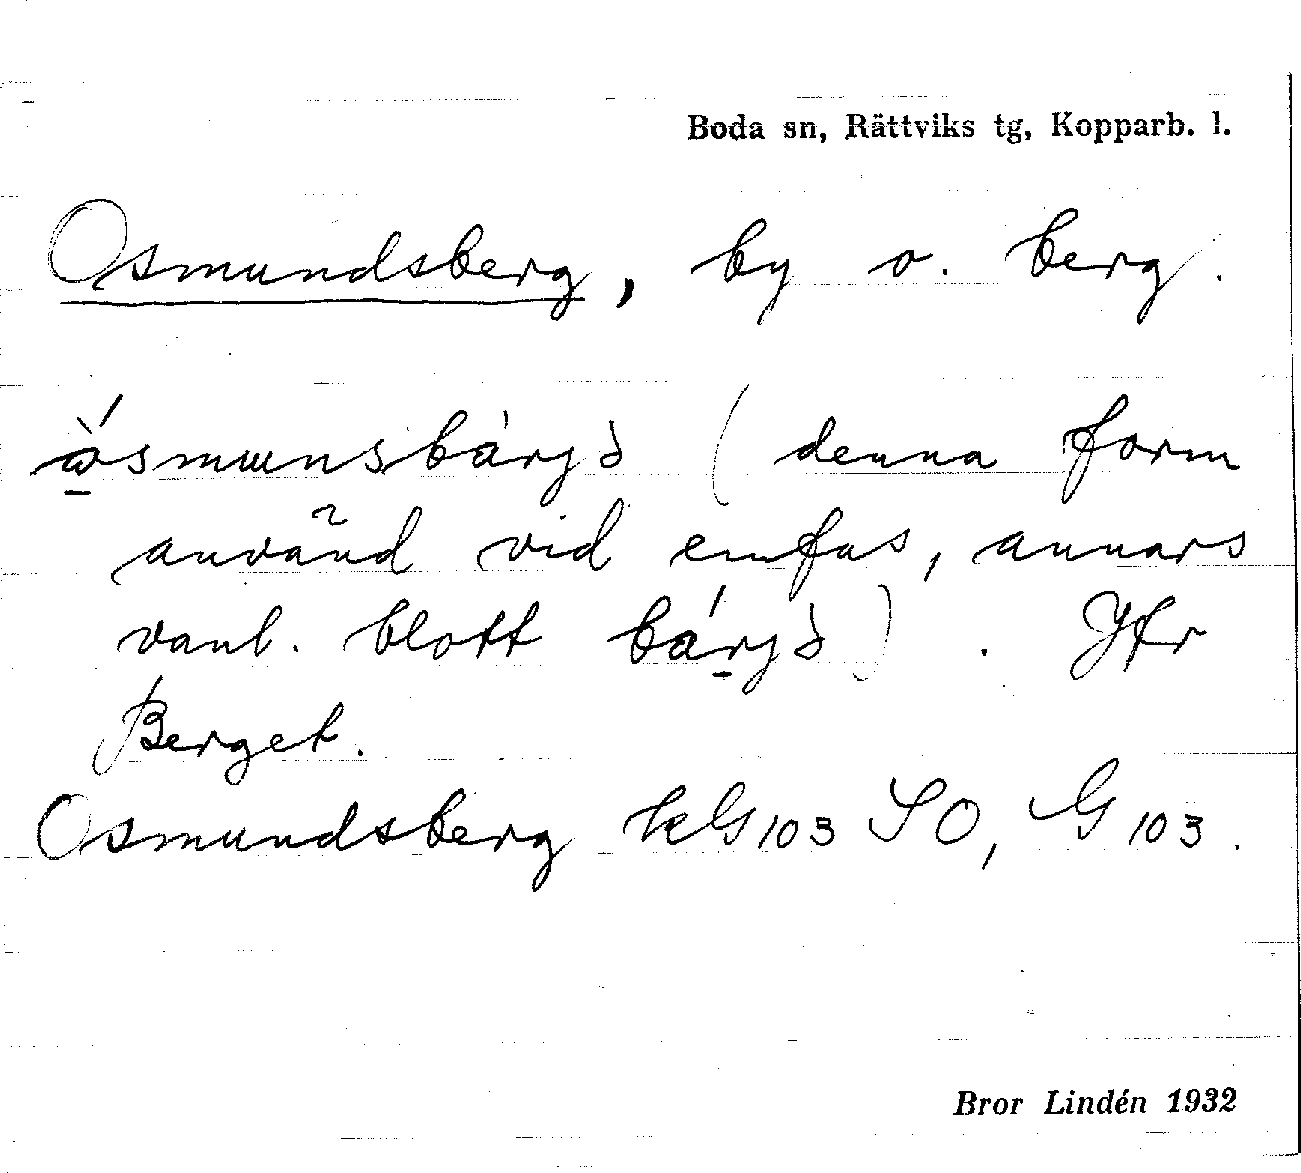 Boda sn, Rättviks tg, Kopparb. l.
Osmundsberg, by o. berg.
(denna form
använd vid emfas, annars
vanl. blott ). Jfr
Berget.
Osmundsberg kG103 SO, G103.
Bror Lindén 1932